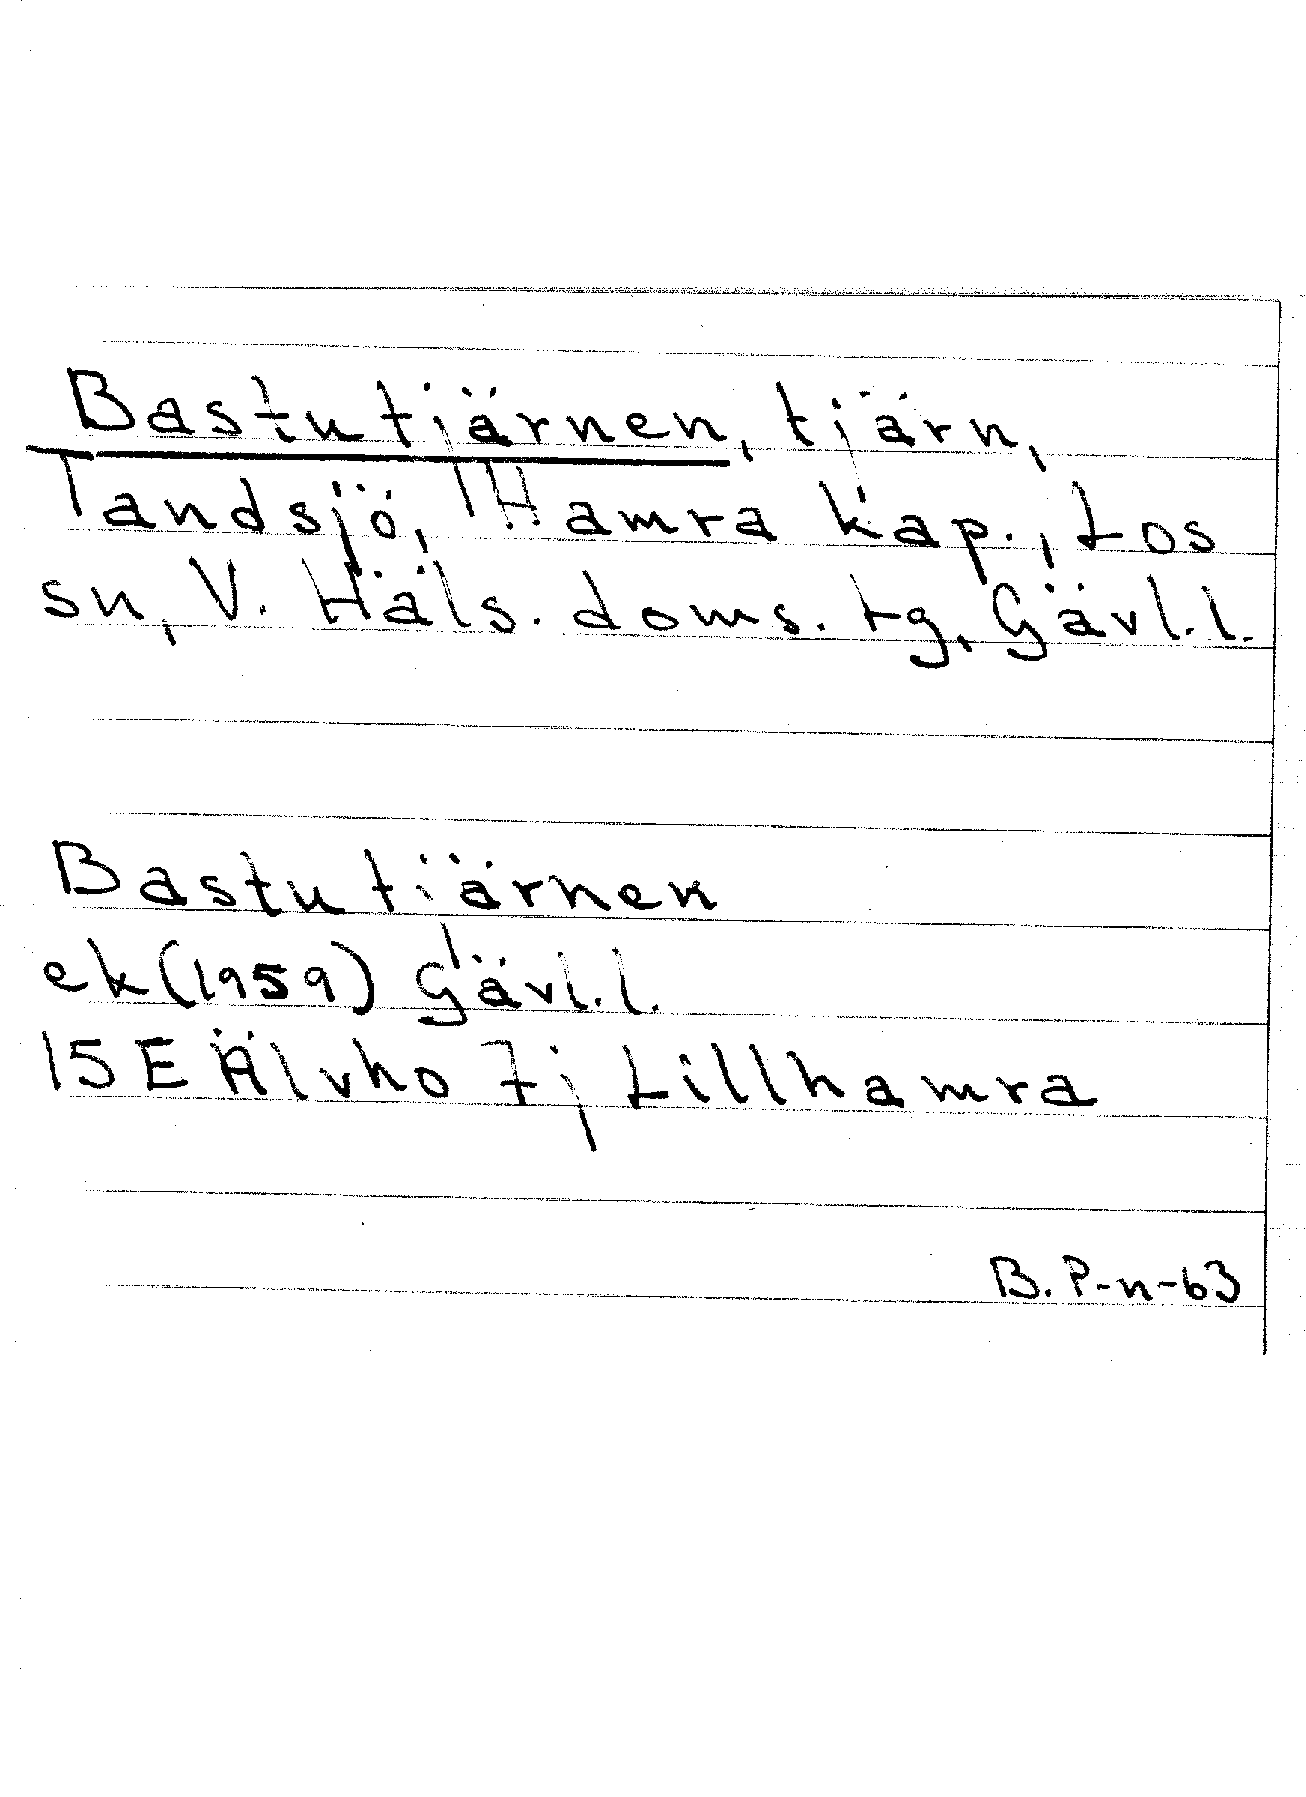 Bastutjärnen, tjärn,
Tandsjö, Hamra kap., Los
sn, V. Häls. doms. tg, Gävl. l.
Bastutjärnen
ek (1959) Gävl. l.
15 E Älvho 7j Lillhamra
B. P-n-63